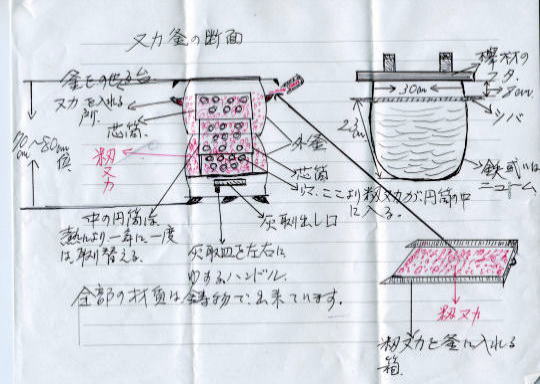 ヌカ釜の断面
釜をのせる台
ヌカを入れる
所.
芯筒.
70cm〜80cm位.
籾ヌカ
外釜
芯筒
ここより籾ヌカが円筒の中
に入る.
中の円筒は
熱により一年に一度
は取り替える.
灰取出し口
灰取皿を左右に
ゆするハンドル.
全部の材質は鋳物で出来ています.
フタ.
30cm
8cm.
ツバ
鉄或いは
ニューム.
籾ヌカ
籾ヌカを釜に入れる
箱.